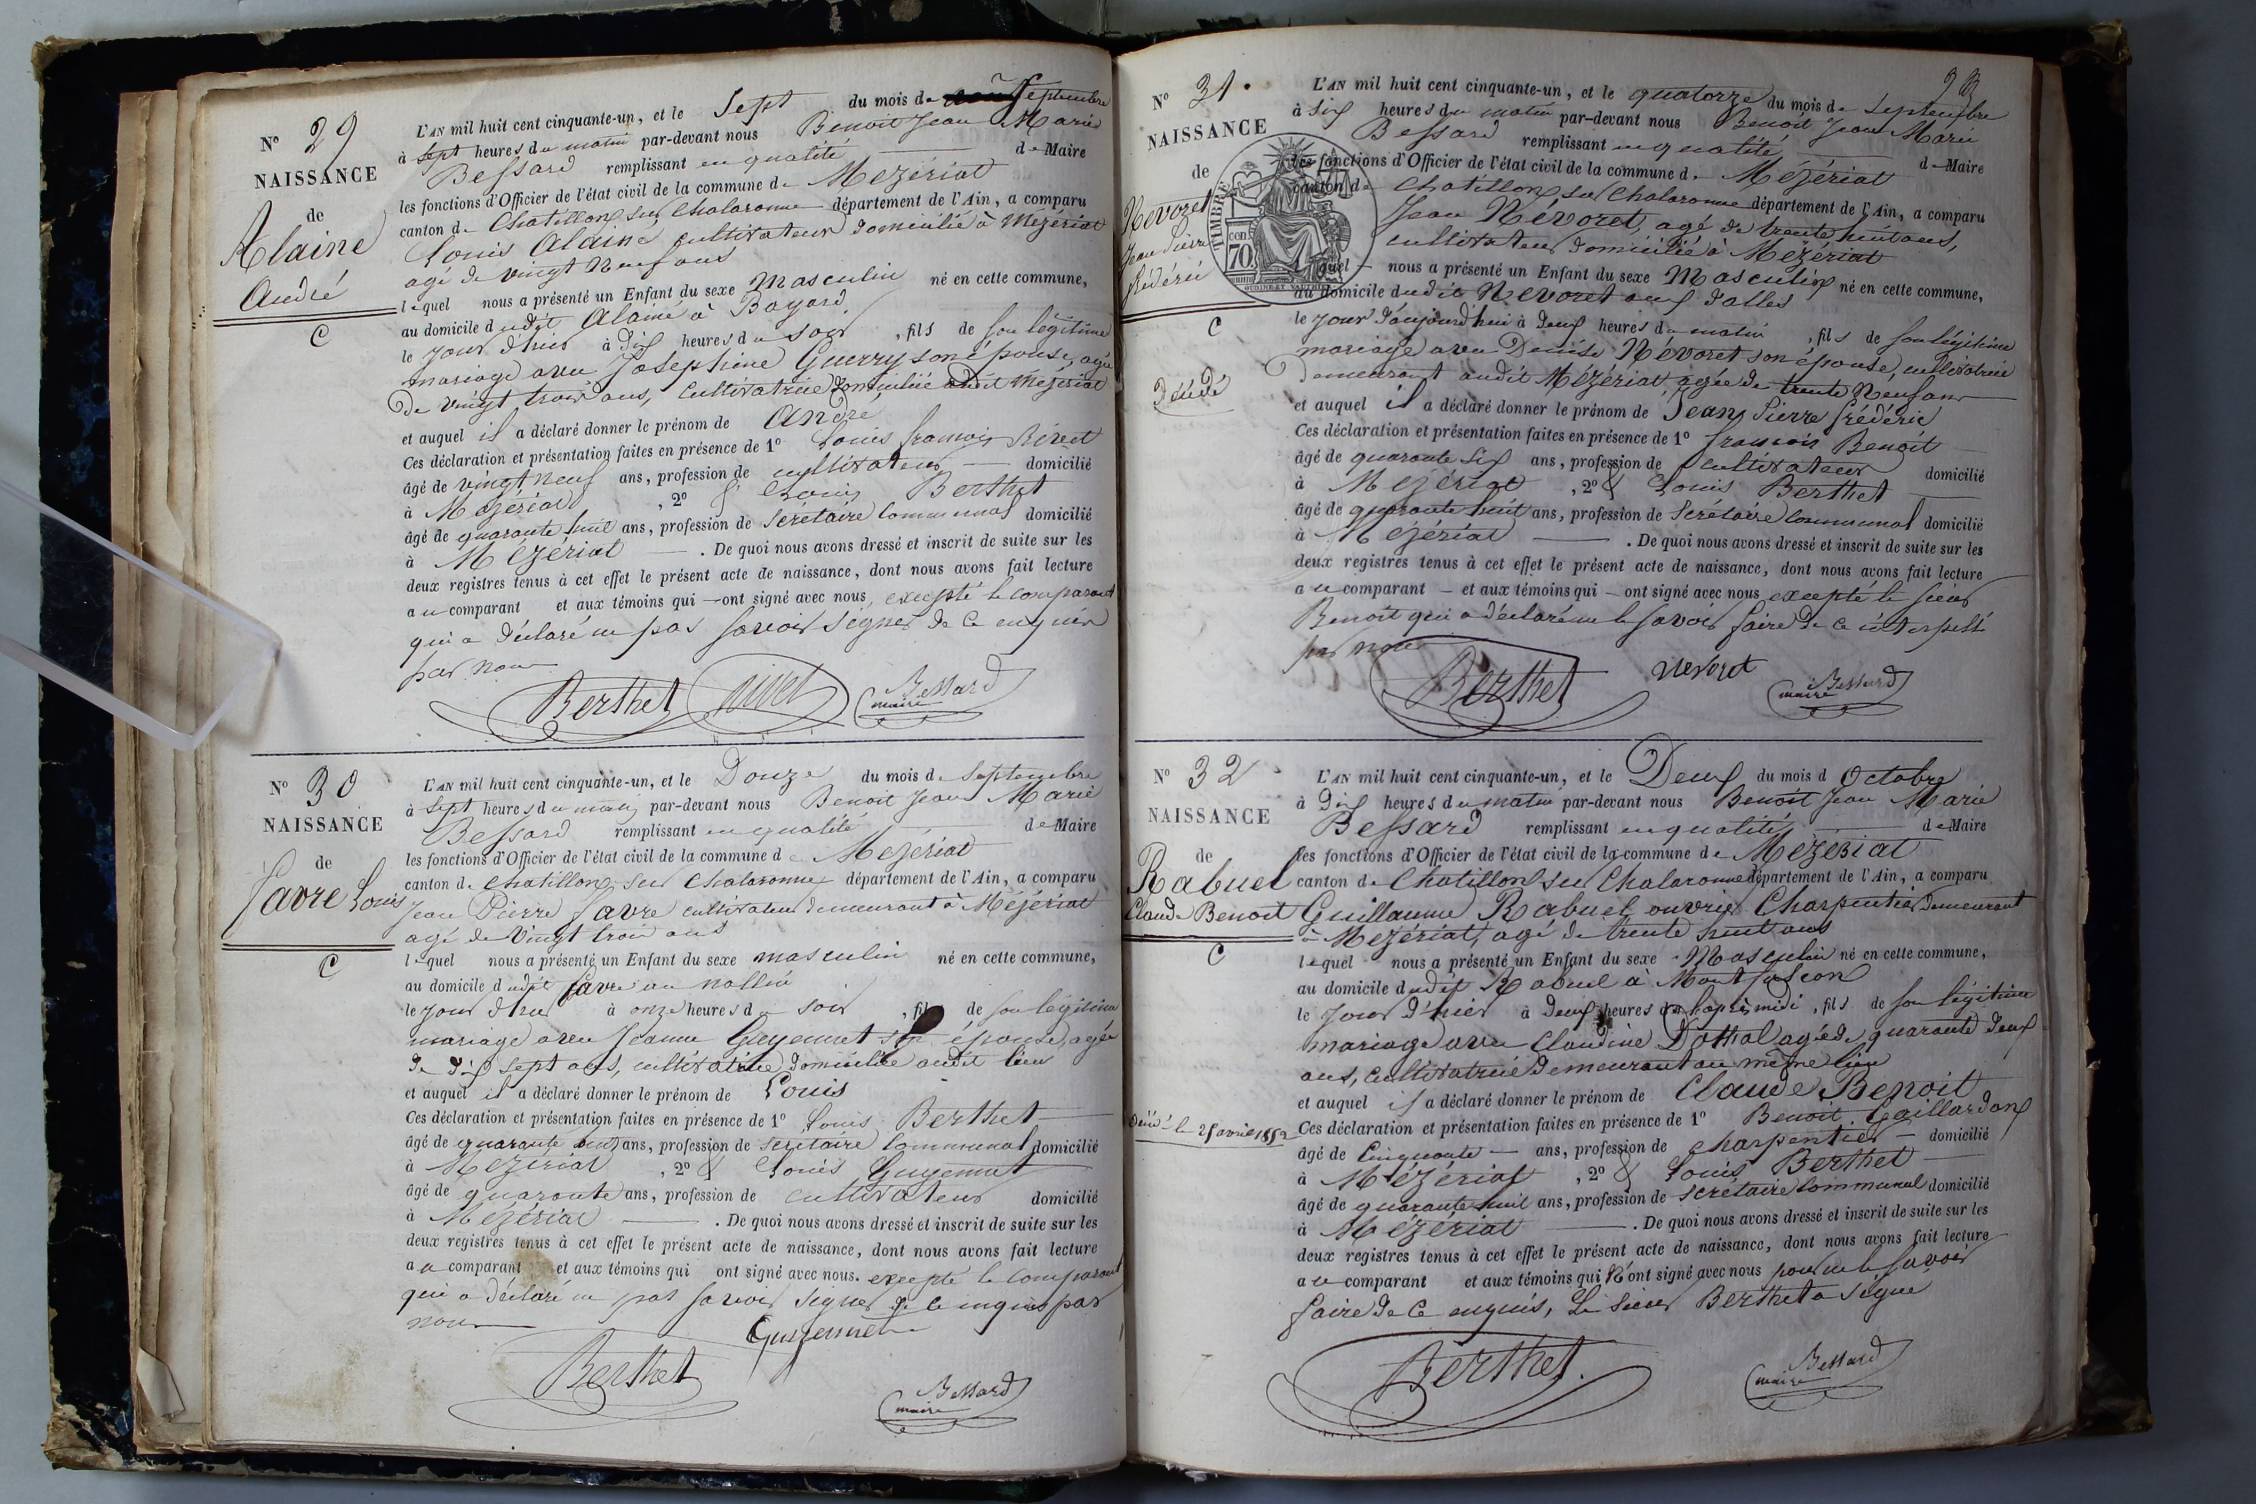 N° 29
NAISSANCE
de
Alaine
André
C
L'AN mil huit cent cinquante-un, et le Sept du mois de Septembre
à Sept heures du matin par-devant nous Benoit Jean Marie
Bessard remplissant en qualité de Maire
les fonctions d'Officier de l'état civil de la commune de Mézériat
canton de Chatillon sur Chalaronne département de l'Ain, a comparu
Louis Alaine, cultivateur domicilié à Mézériat
agé de vingt neuf ans
lequel nous a présenté un Enfant du sexe Masculin né en cette commune,
au domicile dudit Alaine à Bayard
le jour d'hier à dix heures du soir, fils de son légitime
mariage avec Joséphine Guerry son épouse, agée
De vingt trois ans, cultivatrice domiciliée audit Mézériat
et auquel il a déclaré donner le prénom de André
Ces déclaration et présentation faites en présence de 1° Louis françois Nivet
âgé de vingt neuf ans, profession de cultivateur domicilié
à Mézériat, 2° & Louis Berthet
âgé de quarante huit ans, profession de Secrétaire Communal domicilié
à Mézériat. De quoi nous avons dressé et inscrit de suite sur les
deux registres tenus à cet effet le présent acte de naissance, dont nous avons fait lecture
au comparant et aux témoins qui ont signé avec nous, excepté le comparant
qui a déclaré ne pas savoir signer de ce enquis
par nous
Berthet Nivet Bessard
maire
N° 30
NAISSANCE
de
Favre Louis
C
L'AN mil huit cent cinquante-un, et le Douze du mois de Septembre
à Sept heures du matin par-devant nous Benoit Jean Marie
Bessard remplissant en qualité de Maire
les fonctions d'Officier de l'état civil de la commune de Mézériat
canton de Chatillon sur Chalaronne département de l'Ain, a comparu
Jean Pierre Favre cultivateur demeurant à Mézériat
agé de vingt trois ans
lequel nous a présenté un Enfant du sexe masculin né en cette commune,
au domicile dudit Favre au
le jour d'hier à onze heures du soir, fils de son légitime
mariage avec Jeanne Guyennet son épouse, agée
de dix sept ans, cultivatrice domiciliée audit lieu
et auquel il a déclaré donner le prénom de Louis
Ces déclaration et présentation faites en présence de 1° Louis Berthet
âgé de quarante huit ans, profession de secrétaire Communal domicilié
à Mézériat, 2° & Louis Guyennet
âgé de quarante ans, profession de cultivateur domicilié
à Mézériat. De quoi nous avons dressé et inscrit de suite sur les
deux registres tenus à cet effet le présent acte de naissance, dont nous avons fait lecture
au comparant et aux témoins qui ont signé avec nous. excepté le comparant
qui a déclaré ne pas savoir signer de ce enquis par
nous
Guyennet
Berthet Bessard
maire
23
N° 31.
NAISSANCE
de
Névoret
Jean Pierre
frédéric
C
Décédé
TIMBRE
con
70
L'AN mil huit cent cinquante-un, et le quatorze du mois de Septembre
à Six heures du matin par-devant nous Benoit Jean Marie
Bessard remplissant en qualité de Maire
les fonctions d'Officier de l'état civil de la commune de Mézériat
canton de Chatillon sur Chalaronne département de l'Ain, a comparu
Jean Névoret, agé de trente huit ans,
cultivateur domicilié à Mézériat
lequel nous a présenté un Enfant du sexe Masculin né en cette commune,
au domicile dudit Névoret aux Dalles
le jour d'aujourd'hui à Deux heures du matin, fils de son légitime
mariage avec Denise Névoret son épouse, cultivatrice
demeurant audit Mézériat, agée de trente Neuf ans
et auquel il a déclaré donner le prénom de Jean Pierre frédéric
Ces déclaration et présentation faites en présence de 1° françois Benoit
âgé de quarante six ans, profession de cultivateur domicilié
à Mézériat, 2° & Louis Berthet
âgé de quarante huit ans, profession de Secrétaire Communal domicilié
à Mézériat. De quoi nous avons dressé et inscrit de suite sur les
deux registres tenus à cet effet le présent acte de naissance, dont nous avons fait lecture
au comparant et aux témoins qui ont signé avec nous excepté le sieur
Benoit qui a déclaré ne le savoir faire de ce interpellé
par nous
Berthet Nevoret Bessard
maire
N° 32
NAISSANCE
de
Rabuel
Claude Benoit
C
Décédé le 25 avril 1852
L'AN mil huit cent cinquante-un, et le Deux du mois d Octobre
à Dix heures du matin par-devant nous Benoit Jean Marie
Bessard remplissant en qualité de Maire
les fonctions d'Officier de l'état civil de la commune de Mézériat
canton de Chatillon sur Chalaronne département de l'Ain, a comparu
Guillaume Rabuel ouvrier Charpentier demeurant
à Mézériat, agé de trente huit ans
lequel nous a présenté un Enfant du sexe Masculin né en cette commune,
au domicile dudit Rabuel à Montfalcon
le jour d'hier à Deux heures de l'après midi, fils de son légitime
mariage avec Claudine Dothal agée de quarante deux
ans, cultivatrice demeurant au même lieu
et auquel il a déclaré donner le prénom de Claude Benoit
Ces déclaration et présentation faites en présence de 1° Benoit Gaillardon
âgé de Cinquante ans, profession de charpentier domicilié
à Mézériat, 2° & Louis Berthet
âgé de quarante huit ans, profession de secrétaire Communal domicilié
à Mézériat. De quoi nous avons dressé et inscrit de suite sur les
deux registres tenus à cet effet le présent acte de naissance, dont nous avons fait lecture
au comparant et aux témoins qui N'ont signé avec nous pour ne le savoir
faire de ce enquis, Le sieur Berthet a signé
Berthet Bessard
maire